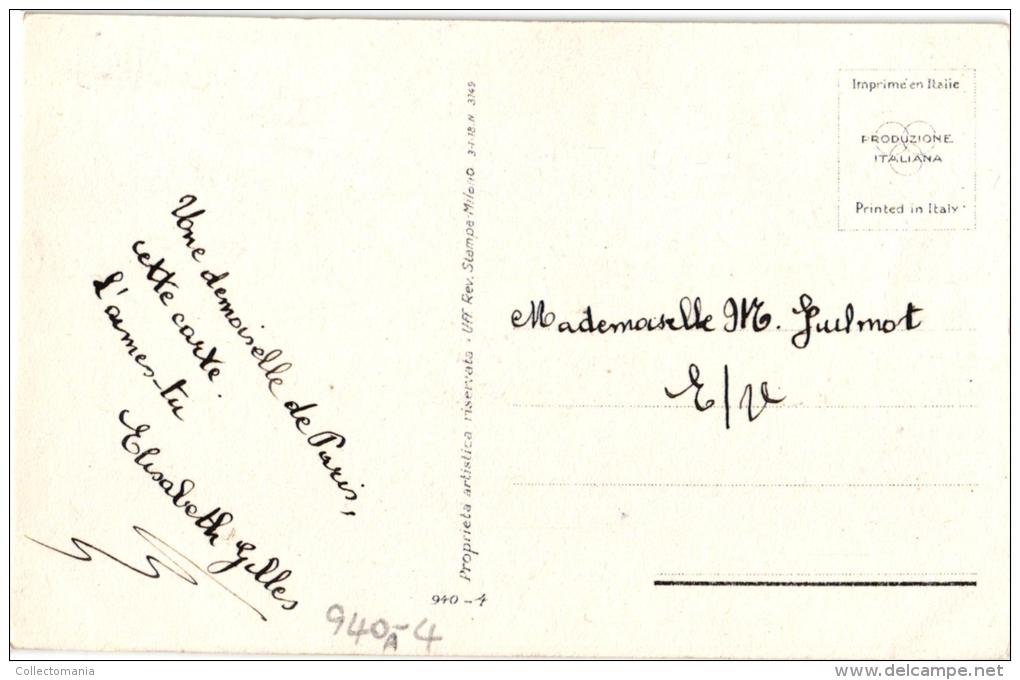 Une demoiselle de Paris,
cette carte.
L'aimes-tu
Elisabeth Gilles
940 A-4
940-4
Proprieta artistica riservata - UFF. Rev. Stampa-Milano 3-1-18.N 3749
Imprimé en Italie
PRODUZIONE
ITALIANA
Printed in Italy
Mademoiselle M. Guilmot
E/V
Collectomania
www.delcampe.net